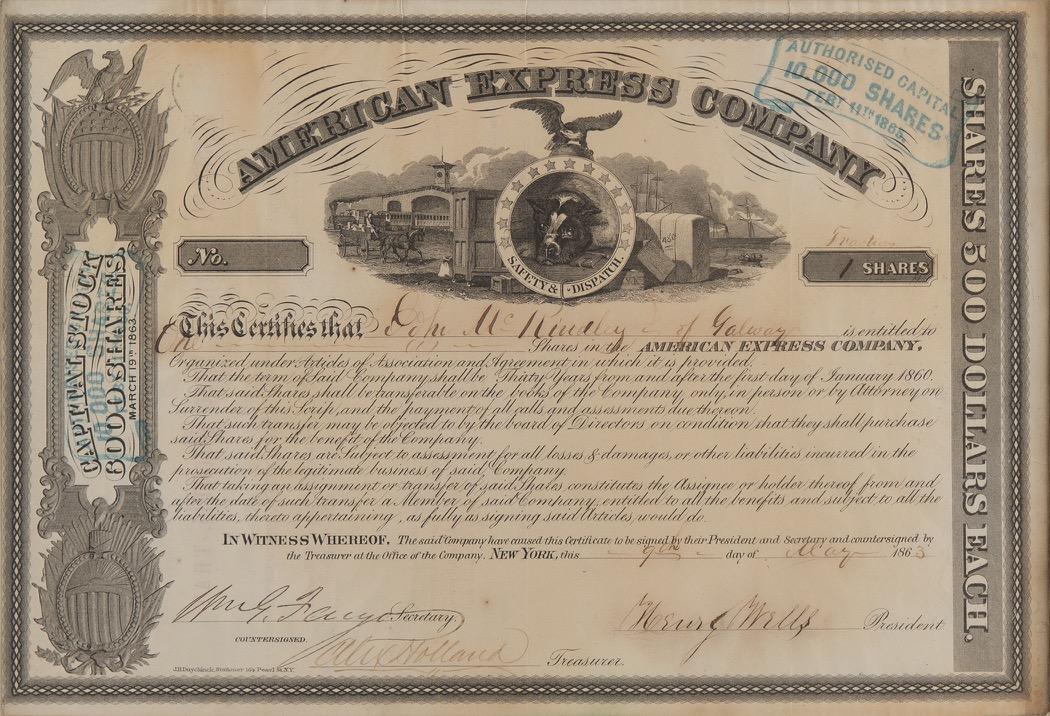 AMERICAN EXPRESS COMPANY
AUTHORISED CAPITAL
10,000 SHARES
FEBY 11TH 1865
SAFETY & DISPATCH.
486
No.
1 SHARES
This Certifies that John Mc Kindley of Galway is entitled to
Shares in the AMERICAN EXPRESS COMPANY,
Organized under Articles of Association and Agreement in which it is provided.
That the term of Said Company shall be Thirty Years from and after the first day of January 1860.
That said Shares shall be transferable on the books of the Company, only, in person or by Attorney on
Surrender of this Scrip, and the payment of all calls and assessments due thereon.
That such transfer may be objected to by the board of Directors on condition that they shall purchase
said Shares for the benefit of the Company.
That said Shares are Subject to assessment for all losses & damages, or other liabilities incurred in the
prosecution of the legitimate business of said Company.
That taking an Assignment or transfer of said Shares constitutes the Assignee or holder thereof from and
after the date of such transfer a Member of said Company, entitled to all the benefits and subject to all the
liabilities, thereto appertaining, as fully as signing said Articles, would do.
IN WITNESS WHEREOF, The said Company have caused this Certificate to be signed by their President and Secretary and countersigned by
the Treasurer at the Office of the Company. NEW YORK, this 9th day of May 1863
Wm G. Fargo Secretary.
Henry Wells President.
COUNTERSIGNED.
Alex Holland Treasurer.
J.H. Duyckinck, Stationer 164 Pearl St. N.Y.
CAPITAL STOCK
8000 SHARES
MARCH 19TH 1863
SHARES 500 DOLLARS EACH.